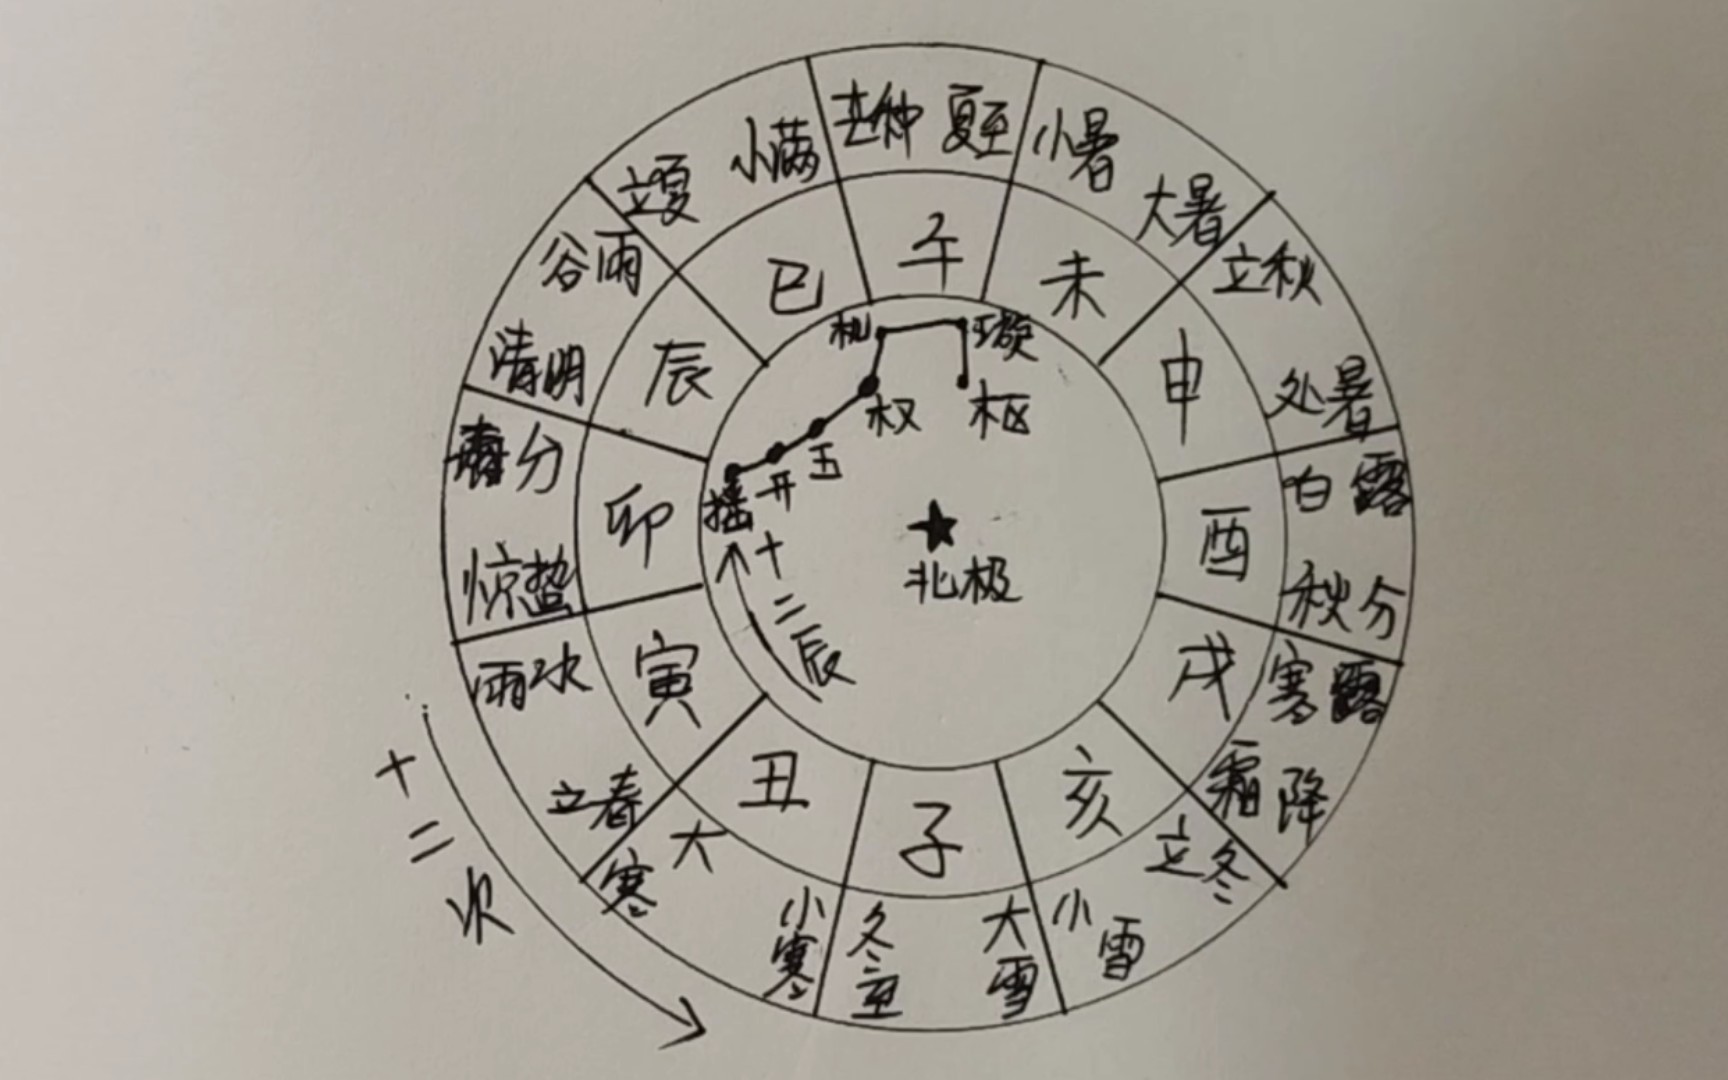 芒种 夏至
小暑
大暑
立秋
处暑
白露
秋分
寒露
霜降
立冬
小雪
大雪
冬至
小寒
大寒
立春
雨水
惊蛰
春分
清明
谷雨
立夏
小满
午
未
申
酉
戌
亥
子
丑
寅
卯
辰
巳
机
璇
权
枢
玉
开
摇
北极
十二辰
十二次